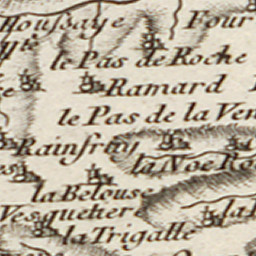 Houssaye
Four
yté
le Pas de Roche
Ramard
le Pas de la Ven
Rainfray
la Noe Ro
la Belouse
Vesquetiere
la Trigalle